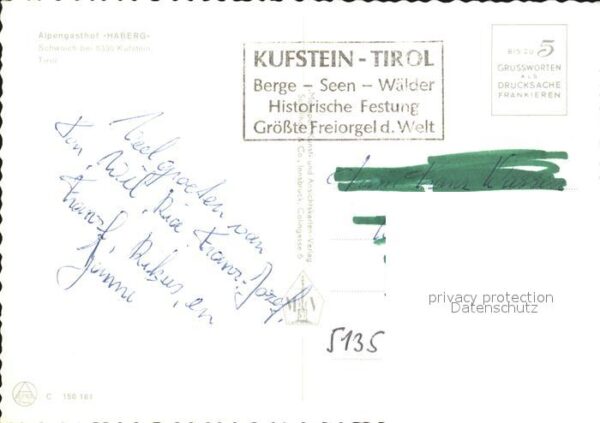 Alpengasthof «HABERG»
Schwoich bei 6330 Kufstein
Tirol
KUFSTEIN - TIROL
Berge - Seen - Wälder
Historische Festung
Größte Freiorgel d. Welt
BIS ZU 5
GRUSSWORTEN
ALS
DRUCKSACHE
FRANKIEREN
Veel groeten van
Ton, Wil, Ria, Franz-Jozef,
Franz, Rikus, en
Jannie
& Co., Innsbruck,
5135
privacy protection
Datenschutz
C 150 161